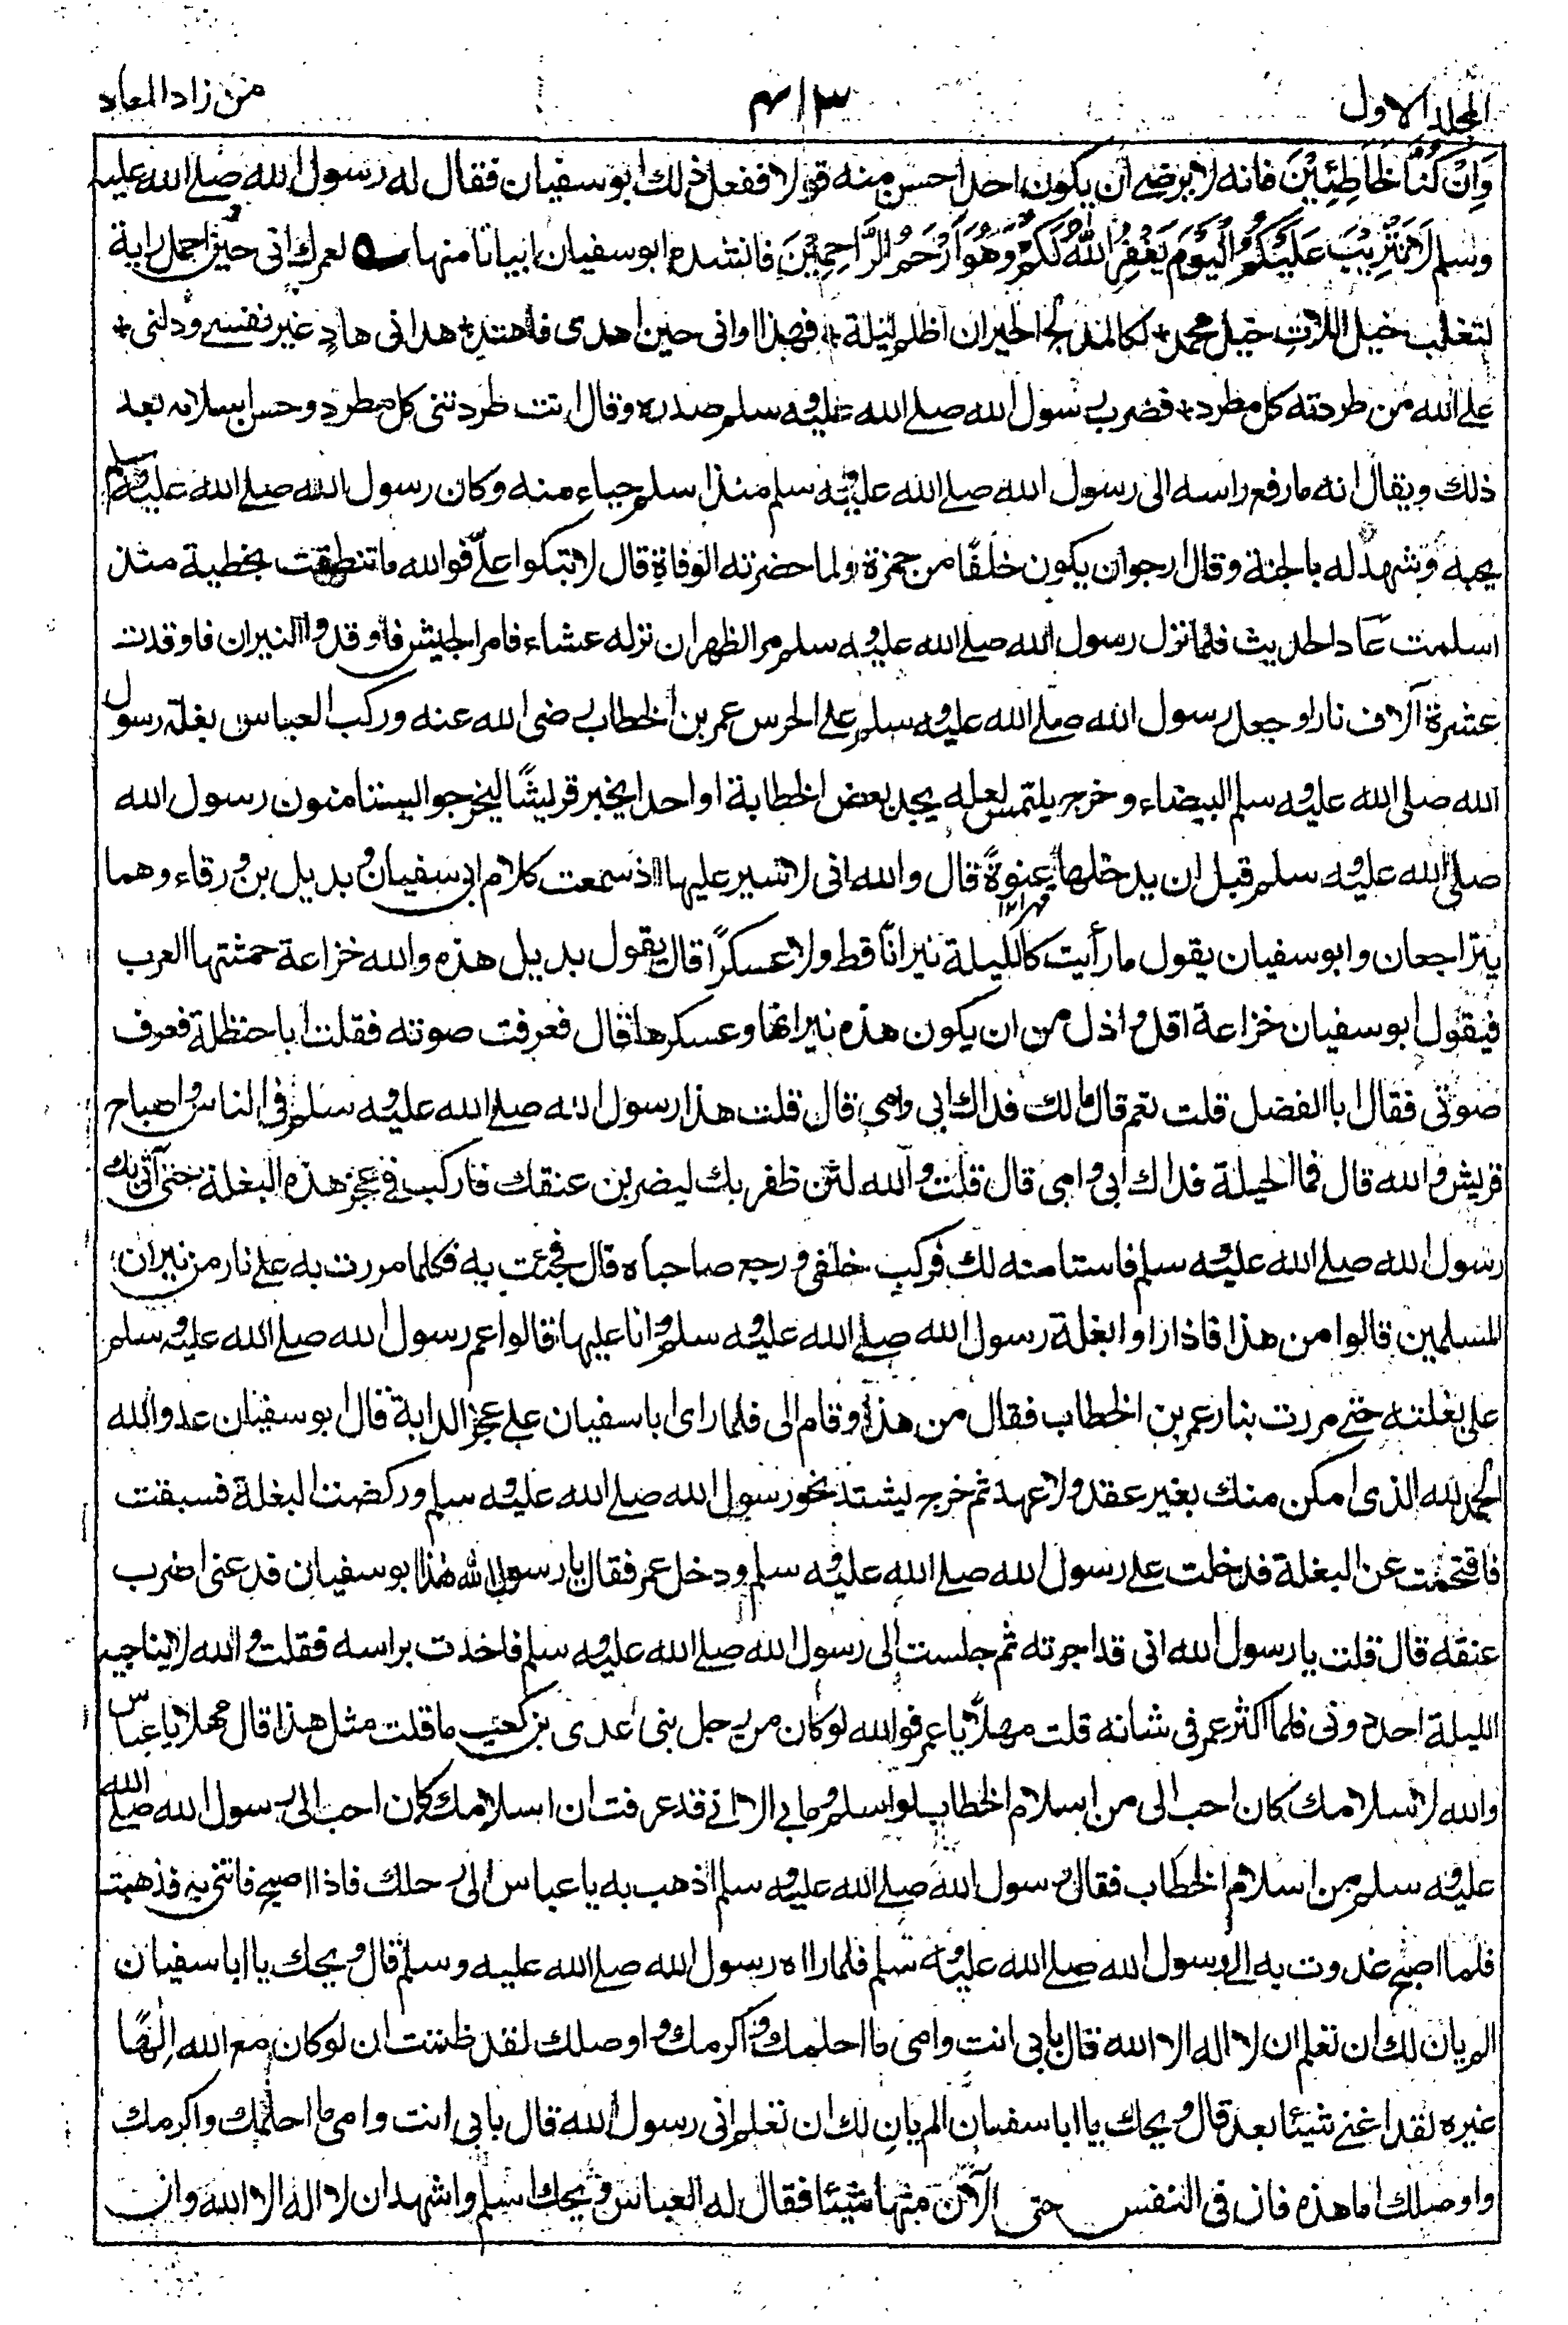 المجلد الاول
٤١٣
من زاد المعاد
وَاِنْ كُنَّا لَخَاطِئِيْنَ فانه لا يرضى ان يكون احد احسن منه قولا ففعل ذلك ابو سفيان فقال له رسول الله صلے الله عليه
وسلم لَا تَثْرِيْبَ عَلَيْكُمُ الْيَوْمَ يَغْفِرُ اللهُ لَكُمْ وَهُوَ اَرْحَمُ الرَّاحِمِيْنَ فانشده ابو سفيان ابياتا منها لعمرك انى حين احمل راية
لتغلب خيل اللات خيل محمد + لكالمدلج الحيران اظلم ليلة + فهذا اوانى حين اهدى فاهتد + هدانى هادٍ غير نفسے ودلنى +
علے الله من طردته كل مطرد + فضرب رسول الله صلے الله عليه وسلم صدره وقال انت طردتنى كل مطرد وحسن اسلامه بعد
ذلك ويقال انه ما رفع راسه الى رسول الله صلے الله عليه وسلم منذ اسلم حياء منه وكان رسول الله صلے الله عليه وسلم
يحبه وشهد له بالجنة وقال ارجو ان يكون خلفًا من حمزة ولما حضرته الوفاة قال لا تبكوا علىّ فوالله ما تنطقت بخطية منذ
اسلمت عاد الحديث فلما نزل رسول الله صلے الله عليه وسلم مر الظهران نزله عشاء فامر الجيش فاوقدوا النيران فاوقدت
عشرة آلاف نار وجعل رسول الله صلے الله عليه وسلم علے الحرس عمر بن الخطاب رضى الله عنه وركب العباس بغلة رسول
الله صلى الله عليه وسلم البيضاء وخرج يلتمس لعله يجد بعض الحطابة او احدا يخبر قريشًا ليخرجوا يستامنون رسول الله
صلى الله عليه وسلم قبل ان يدخلها عنوةً قال والله انى لاسير عليها اذ سمعت كلام ابى سفيان وبديل بن ورقاء وهما
قهرا ١٢
يتراجعان وابو سفيان يقول ما رأيت كالليلة نيرانًا قط ولا عسكرًا قال يقول بديل هذه والله خزاعة حمشتها العرب
فيقول ابو سفيان خزاعة اقل واذل من ان يكون هذه نيرانها وعسكرها قال فعرفت صوته فقلت ابا حنظلة فعرف
صوتى فقال ابا الفضل قلت نعم قال مالك فداك ابى وامى قال قلت هذا رسول الله صلے الله عليه وسلم فى الناس واصباح
قريش والله قال فما الحيلة فداك ابى وامى قال قلت والله لئن ظفر بك ليضربن عنقك فاركب فى عجز هذه البغلة حتى آتى بك
رسول الله صلے الله عليه وسلم فاستامنه لك فركب خلفى ورجع صاحباه قال فجئت به فكلما مررت به علے نار من نيران
المسلمين قالوا من هذا فاذا راوا بغلة رسول الله صلے الله عليه وسلم وانا عليها قالوا عم رسول الله صلے الله عليه وسلم
على بغلته حتى مررت بنار عمر بن الخطاب فقال من هذا وقام الى فلما راى ابا سفيان علے عجز الدابة قال ابو سفيان عدو الله
الحمد لله الذى امكن منك بغير عقد ولا عهد ثم خرج يشتد نحو رسول الله صلے الله عليه وسلم وركضت البغلة فسبقت
فاقتحمت عن البغلة فدخلت علے رسول الله صلے الله عليه وسلم ودخل عمر فقال يا رسول الله هذا ابو سفيان فدعنى اضرب
عنقه قال قلت يا رسول الله انى قد اجرته ثم جلست الى رسول الله صلے الله عليه وسلم فاخذت براسه فقلت والله لا يناجيه
الليلة احد دونى فلما اكثر عمر فى شانه قلت مهلا يا عمر فوالله لو كان من رجل بنى عدى بن كعب ما قلت مثل هذا قال مهلا يا عباس
والله لاسلامك كان احب الى من اسلام الخطاب لو اسلم وما بى الا انى قد عرفت ان اسلامك كان احب الى رسول الله صلے الله
عليه وسلم من اسلام الخطاب فقال رسول الله صلے الله عليه وسلم اذهب به يا عباس الى رحلك فاذا اصبح فاتنى به فذهبت
فلما اصبح غدوت به الى رسول الله صلے الله عليه وسلم فلما راه رسول الله صلے الله عليه وسلم قال ويحك يا ابا سفيان
الم يان لك ان تعلم ان لا اله الا الله قال بابى انت وامى ما احلمك واكرمك واوصلك لقد ظننت ان لو كان مع الله اِلٰهًا
غيره لقد اغنى شيئا بعد قال ويحك يا ابا سفيان الم يانِ لك ان تعلم انى رسول الله قال بابى انت وامى ما احلمك واكرمك
واوصلك اما هذه فان فى النفس حتى الآن منها شيئا فقال له العباس ويحك اسلم واشهد ان لا اله الا الله وان